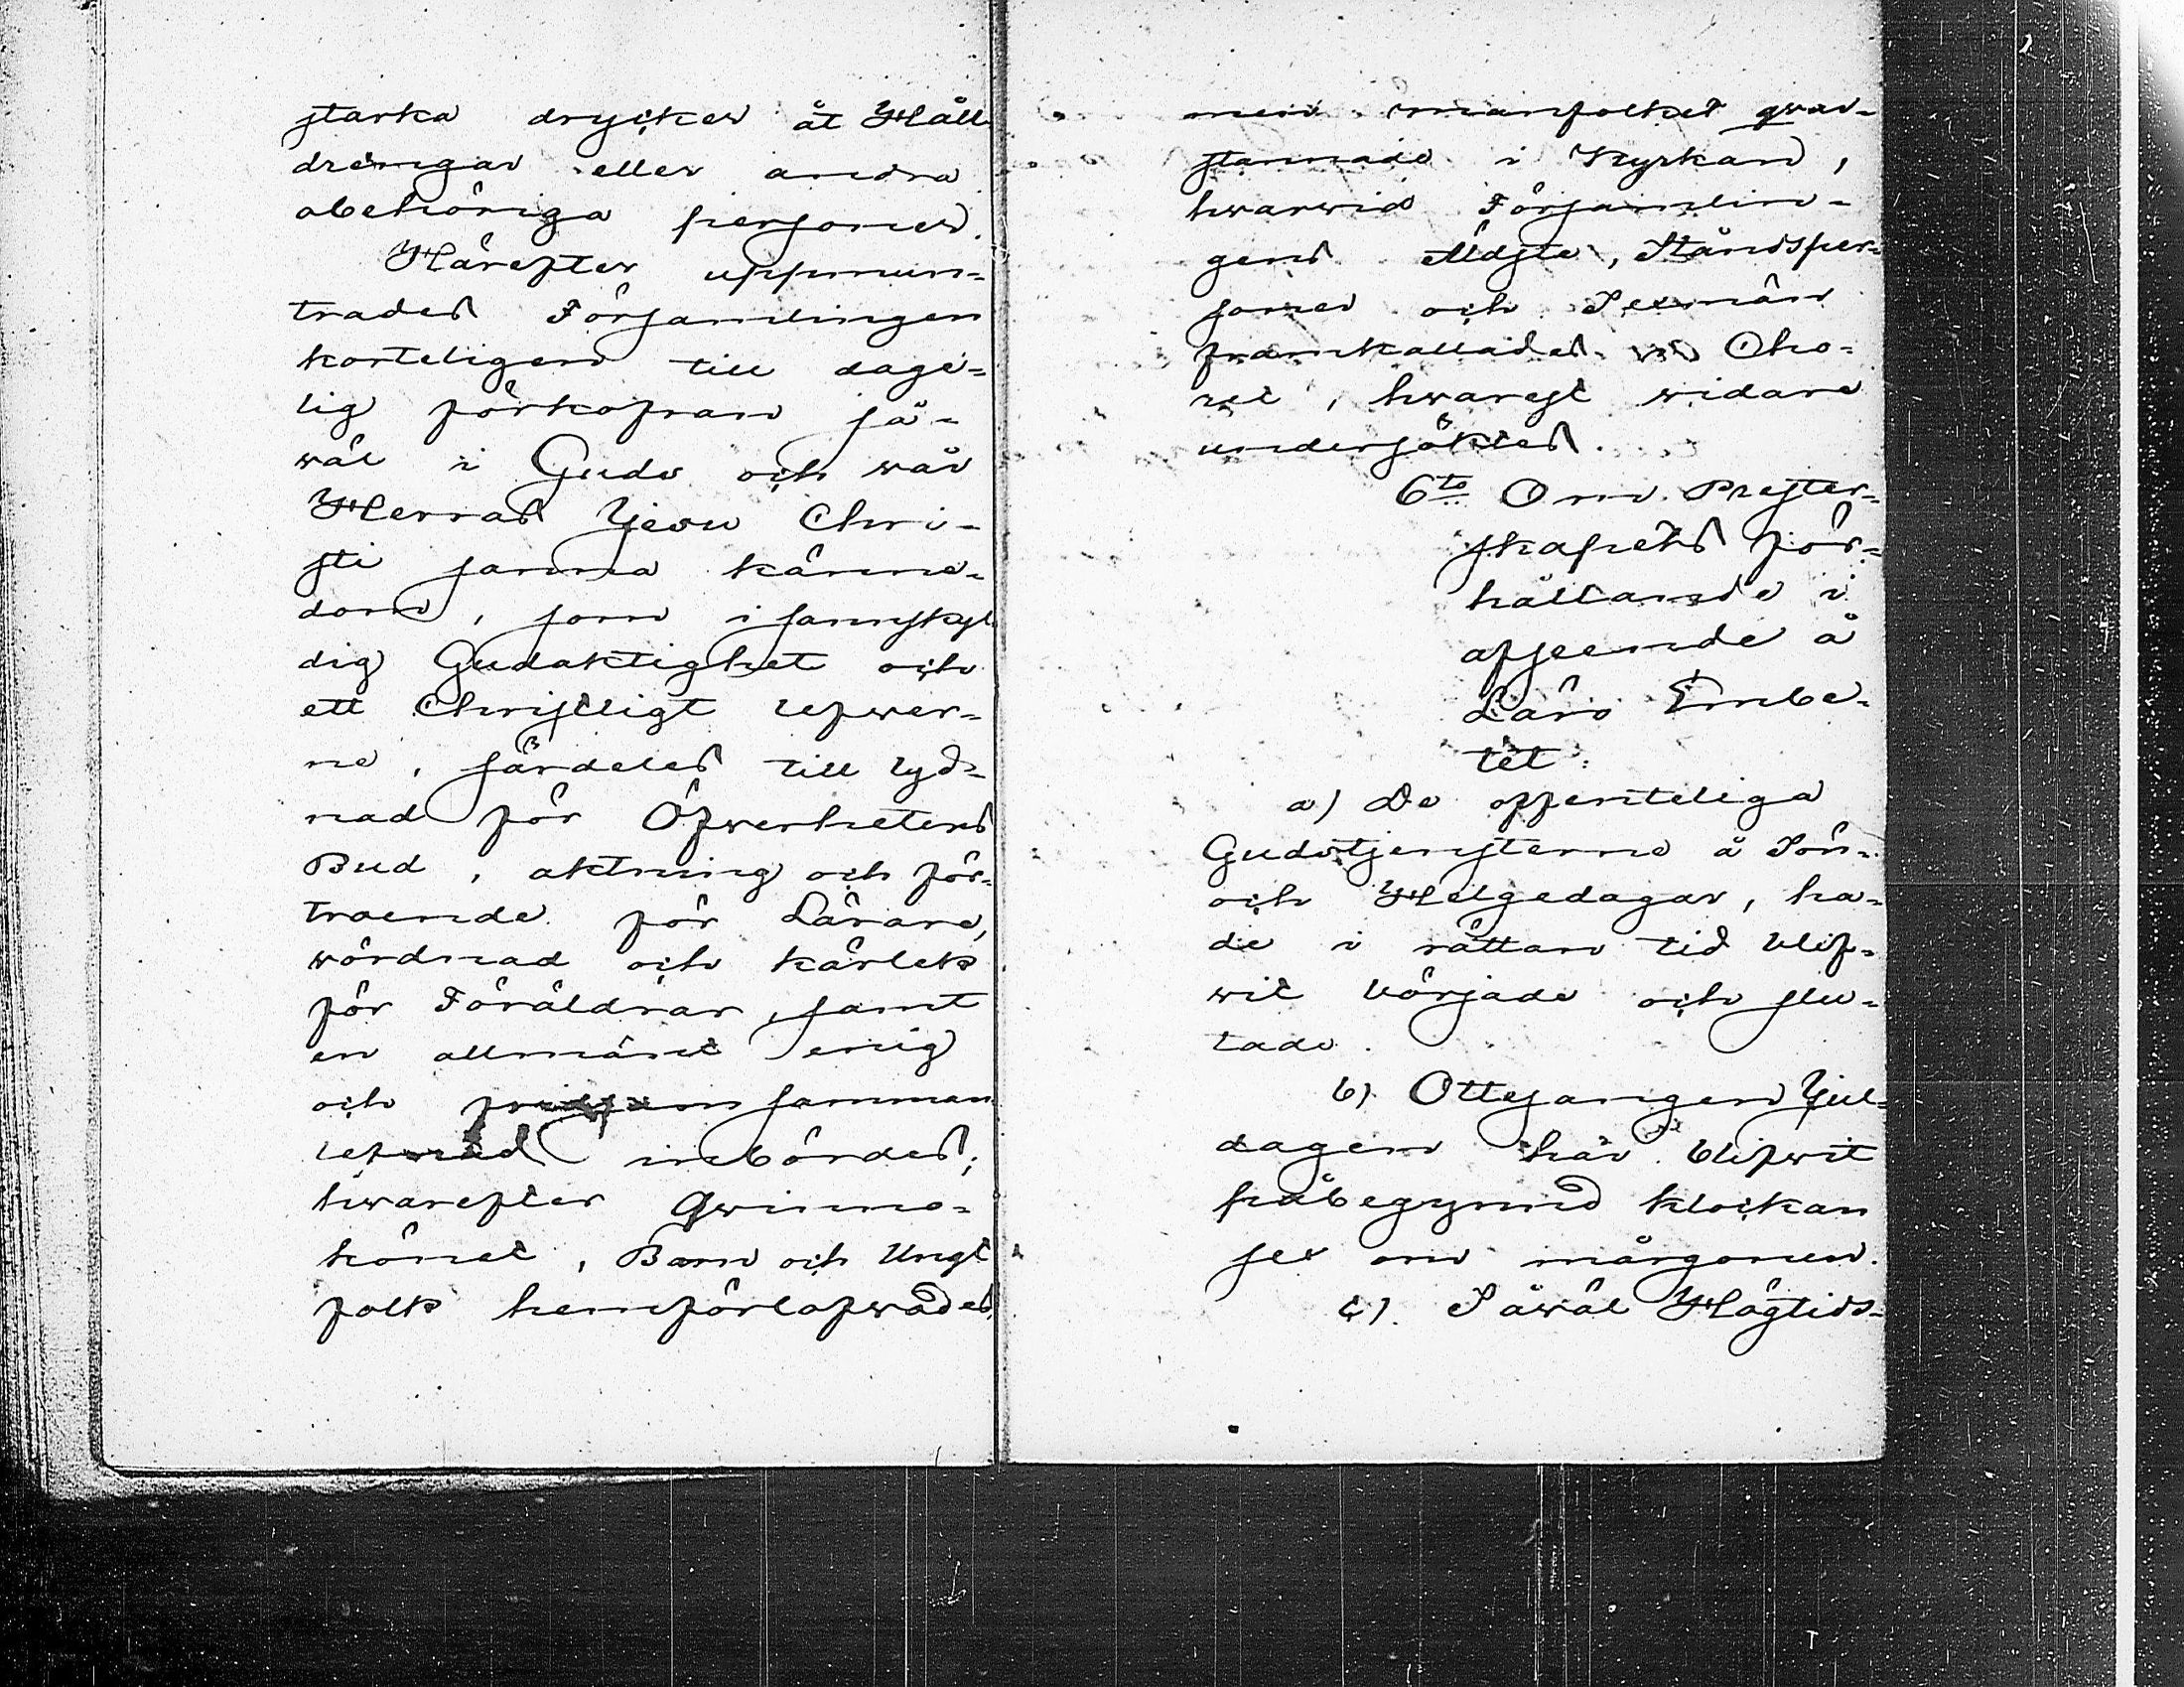 starka drycker åt Håll
drängar eller andra
obehöriga personer.
Härefter uppmun-
trades Församlingen
korteligen till dage-
lig förkofran så-
wäl i Guds och wår
Herras Jesu Chri-
sti sanna känne-
dom, som i sannskyl
dig Gudaktighet och
ett Christligt Lefwer-
ne, särdeles till lyd-
nad för Öfwerhetens
Bud, aktning och för-
troende för Lärare,
wördnad och kärlek
för Föräldrar, samt
en allmänt enig
och fridsam samman
lefnad inbördes;
hwarefter Qwinno-
könet, Barn och Ungt
folk hemförlofwades,
men manfolket qwar-
stannade i Kyrkan,
hwarwid Församlin-
gens Äldste, Ståndsper-
soner och Sexmän
framkallades til Cho-
ret, hwarest widare
undersöktes.
6to Om Prester-
skapets för-
hållande i
afseende å
Läro Embe-
tet:
a) De offenteliga
Gudstjensterne å Sön-
och Helgedagar, ha-
de i rättan tid blif-
wit började och slu-
tade.
b). Ottesangen Jul-
dagen här blifwit
påbegynnd klockan
sex om mårgonen.
c). Såwäl Högtids-